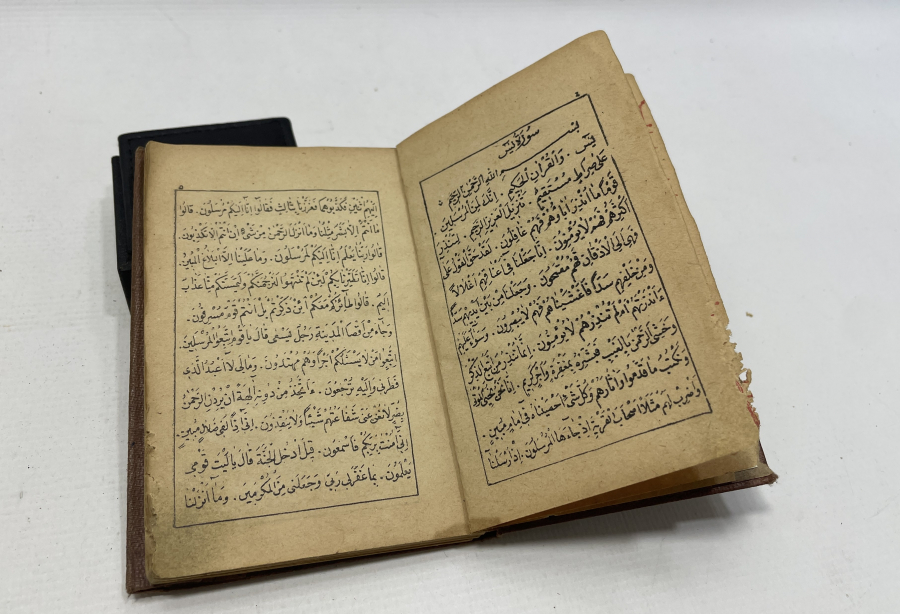 ٤
سورة يس
بسم الله الرحمن الرحيم
يس . والقرآن الحكيم . إنك لمن المرسلين .
على صراط مستقيم . تنزيل العزيز الرحيم . لتنذر
قوما ما أنذر آباؤهم فهم غافلون . لقد حق القول على
أكثرهم فهم لا يؤمنون . إنا جعلنا في أعناقهم أغلالا
فهي إلى الأذقان فهم مقمحون . وجعلنا من بين أيديهم سدا
ومن خلفهم سدا فأغشيناهم فهم لا يبصرون . وسواء عليهم
ءأنذرتهم أم لم تنذرهم لا يؤمنون . إنما تنذر من اتبع الذكر
وخشي الرحمن بالغيب فبشره بمغفرة وأجر كريم . إنا نحن نحيي الموتى
ونكتب ما قدموا وآثارهم وكل شيء أحصيناه في إمام مبين .
واضرب لهم مثلا أصحاب القرية إذ جاءها المرسلون . إذ أرسلنا
٥
إليهم اثنين فكذبوهما فعززنا بثالث فقالوا إنا إليكم مرسلون . قالوا
ما أنتم إلا بشر مثلنا وما أنزل الرحمن من شيء إن أنتم إلا تكذبون .
قالوا ربنا يعلم إنا إليكم لمرسلون . وما علينا إلا البلاغ المبين .
قالوا إنا تطيرنا بكم لئن لم تنتهوا لنرجمنكم وليمسنكم منا عذاب
أليم . قالوا طائركم معكم أئن ذكرتم بل أنتم قوم مسرفون .
وجاء من أقصا المدينة رجل يسعى قال يا قوم اتبعوا المرسلين .
اتبعوا من لا يسئلكم أجرا وهم مهتدون . ومالي لا أعبد الذي
فطرني وإليه ترجعون . ءأتخذ من دونه آلهة إن يردن الرحمن
بضر لا تغن عني شفاعتهم شيئا ولا ينقذون . إني إذا لفي ضلال مبين .
إني آمنت بربكم فاسمعون . قيل ادخل الجنة قال يا ليت قومي
يعلمون . بما غفر لي ربي وجعلني من المكرمين . وما أنزلنا